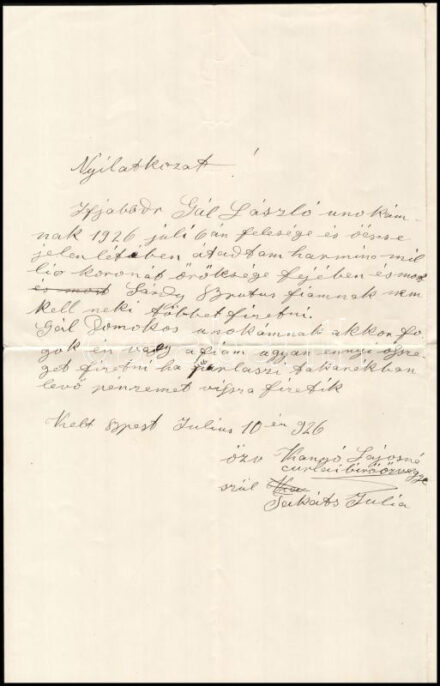 Nyilatkozat!
Ifjabb dr Gál László unokám-
nak 1926 juli 6án felesége és
jelenlétében átadtam harminc mil
lió koronát öröksége fejében és most
és most Sárdy Brutus fiamnak nem
kell neki többet fizetni.
Gál Domokos unokámnak akkor fo
gok én vagy a fiam ugyan ennyi össze
get fizetni ha a takarékban
levő pénzemet vissza fizetik
Kelt Bpest Julius 10 én 926
özv Lajosné
curiai biró özvegye
szül
Takáts Julia